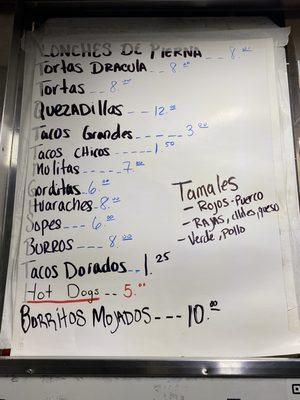 LONCHES DE PIERNA -- 8.00
Tortas DRACULA -- 8.00
Tortas -- 8.00
QUEZADillas --- 12.00
Tacos Grandes ------ 3.00
Tacos CHICOS ----- 1.50
Molitas ----- 7.00
Gorditas 6.00
Huaraches 8.00
Sopes --- 6.00
BURROS --- 8.00
Tacos Dorados -- 1.25
Hot Dogs -- 5.00
BORRITOS MOJADOS --- 10.00
Tamales
- ROJOS - Puerco
- RAJAS, chiles, queso
- Verde, Pollo